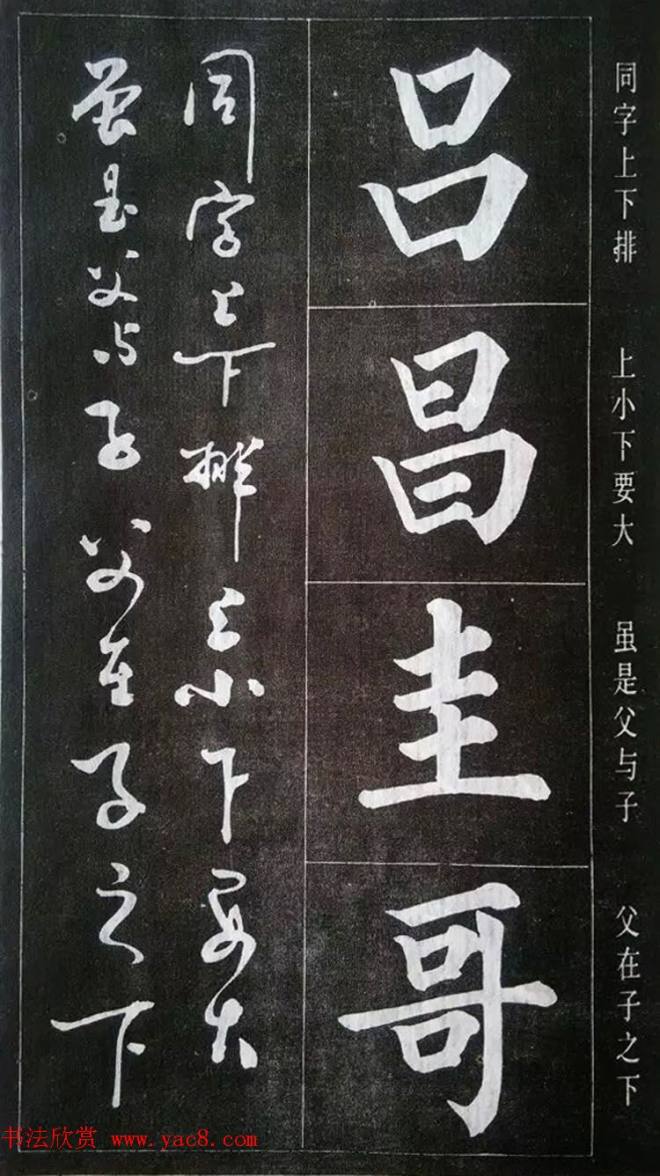 同字上下排 上小下要大 虽是父与子 父在子之下
吕
昌
圭
哥
同字上下排上小下要大
虽是父与子父在子之下
书法欣赏 www.yac8.com